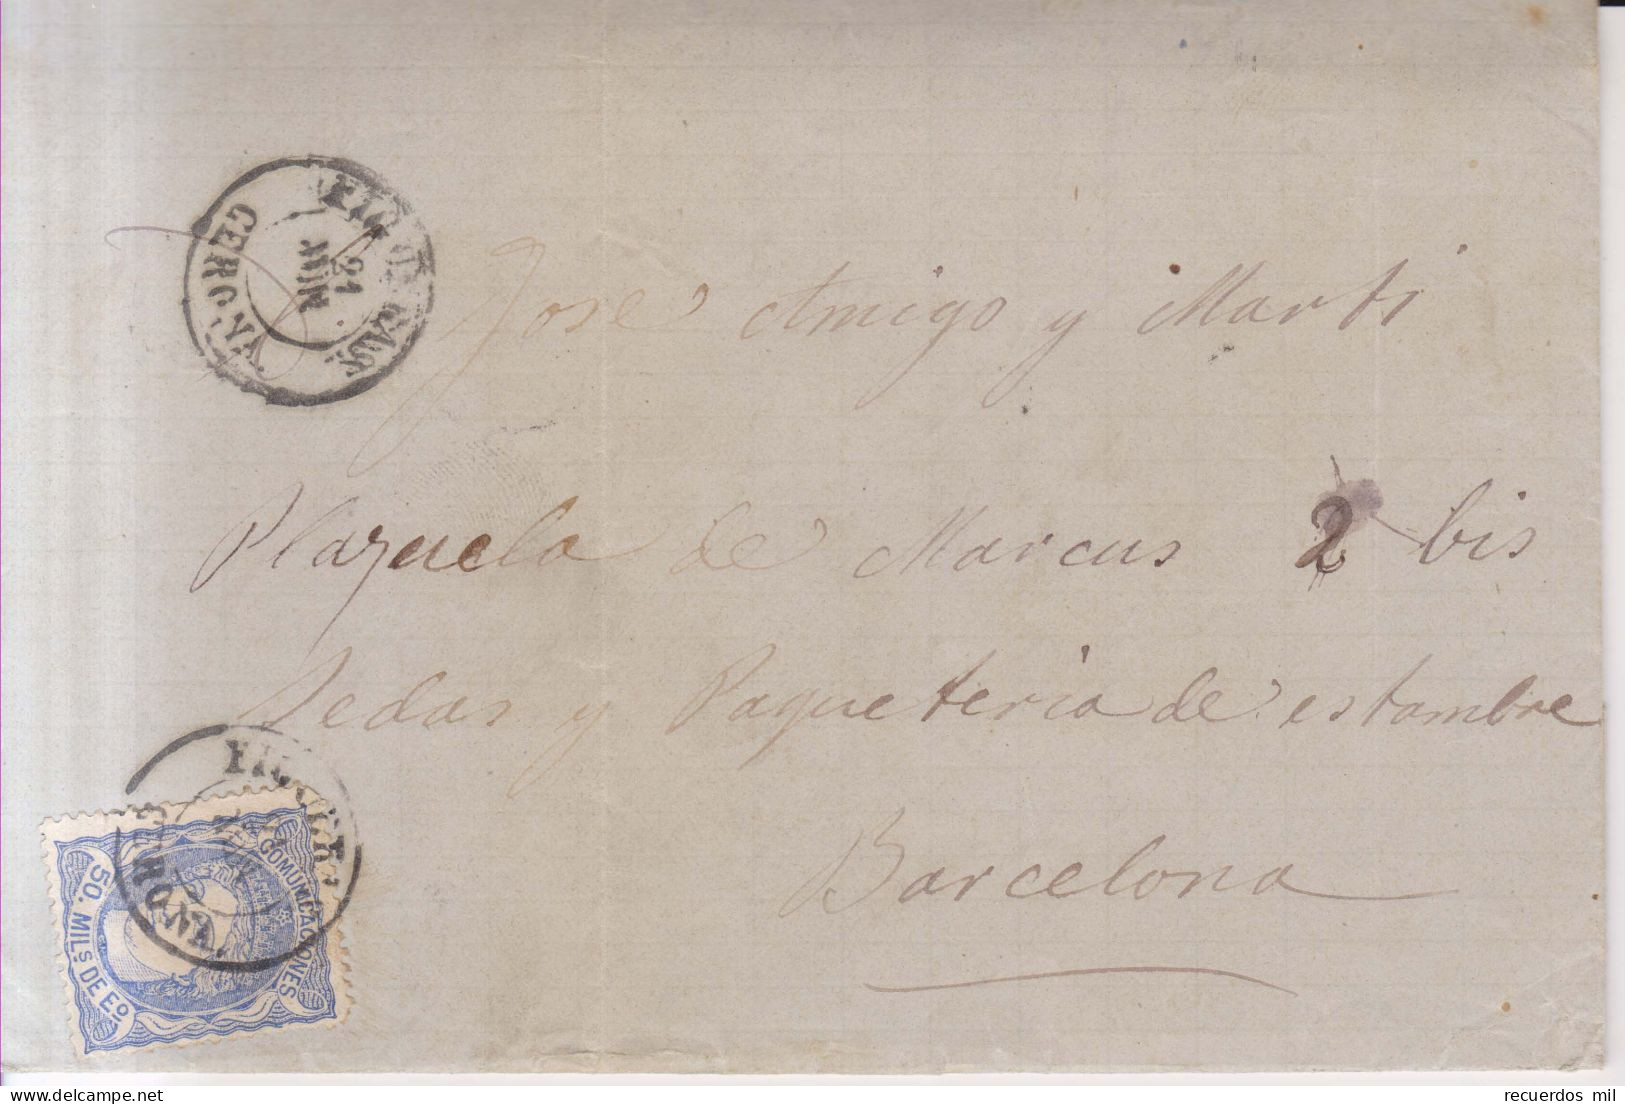 FIGUERAS
21
JUN
GERONA
José Amigo y Marti
Plazuela de Marcus 2 bis
Sedas y Paqueteria de estambre
Barcelona
FIGUERAS
GERONA
COMUNICACIONES
50. MILS DE EO
recuerdos mil